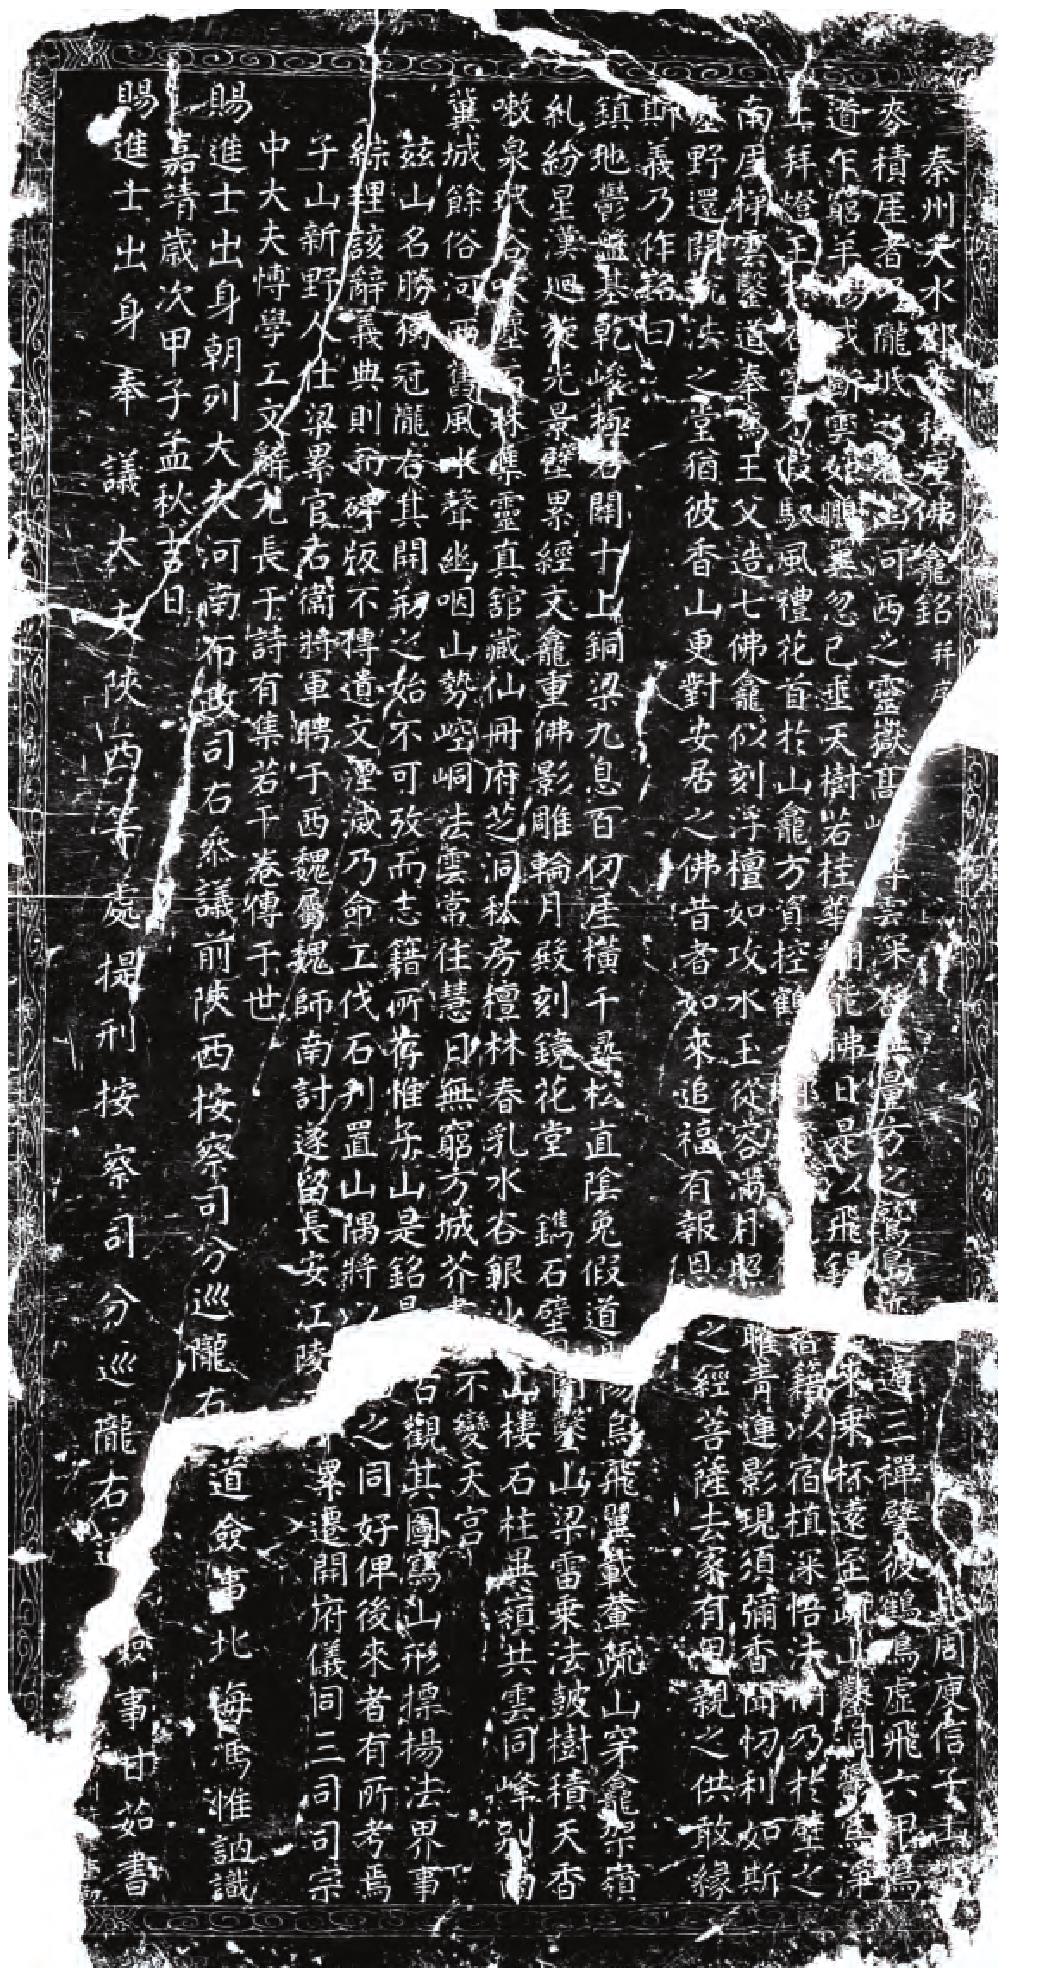 秦州天水郡麥積崖佛龕銘 并序 周庾信子山
麥積崖者乃隴坻之名山河西之靈嶽高 雲深谷無量方之鷲島迹遁三禪譬彼鶴鳴虛飛六甲鳥
道乍窮羊腸或斷雲如鵬翼忽已垂天樹若桂華 佛日是以飛錫 來乘杯遠至疏山鑿洞鬱為淨
土拜燈王於 假馭風禮花首於山龕方資控鶴 者籍以宿植深悟法門乃於壁之
南崖梯雲鑿道奉為王父造七佛龕似刻浮檀如攻水玉從容滿月照耀青蓮影現須彌香聞忉利如斯
塵野還開說法之堂猶彼香山更對安居之佛昔者如來追福有報恩之經菩薩去家有思親之供敢緣
斯義乃作銘曰
鎮地鬱盤基乾峻極石關十上銅梁九息百仞崖橫千尋松直陰兔假道陽烏飛翼載輂疏山穿龕架嶺
糺紛星漢迴旋光景壁累經文龕重佛影雕輪月殿刻鏡花堂 鐫石壁闇鑿山梁雷乘法鼓樹積天香
嗽泉珉谷吹塵石牀集靈真館藏仙冊府芝洞秘房檀林春乳水谷銀沙山樓石柱異嶺共雲同峰別雨
冀城餘俗河西舊風水聲幽咽山勢崆峒法雲常住慧日無窮方城芥 不變天宮
茲山名勝獨冠隴右其開刱之始不可攷而志籍所存惟子山是銘 古觀其圖寫山形摽揚法界事
綜理該辭義典則而碑版不傳遺文湮滅乃命工伐石刋置山隅將以 之同好俾後來者有所考焉
子山新野人仕梁累官右衞將軍聘于西魏屬魏師南討遂留長安江陵 累遷開府儀同三司司宗
中大夫愽學工文辭尤長于詩有集若干卷傳于世
賜進士出身朝列大夫河南布政司右叅議前陝西按察司分巡隴右道僉事北海馮惟訥識
嘉靖歲次甲子孟秋吉日
賜進士出身奉議大夫陝西等處提刑按察司分巡隴右道僉事甘茹書